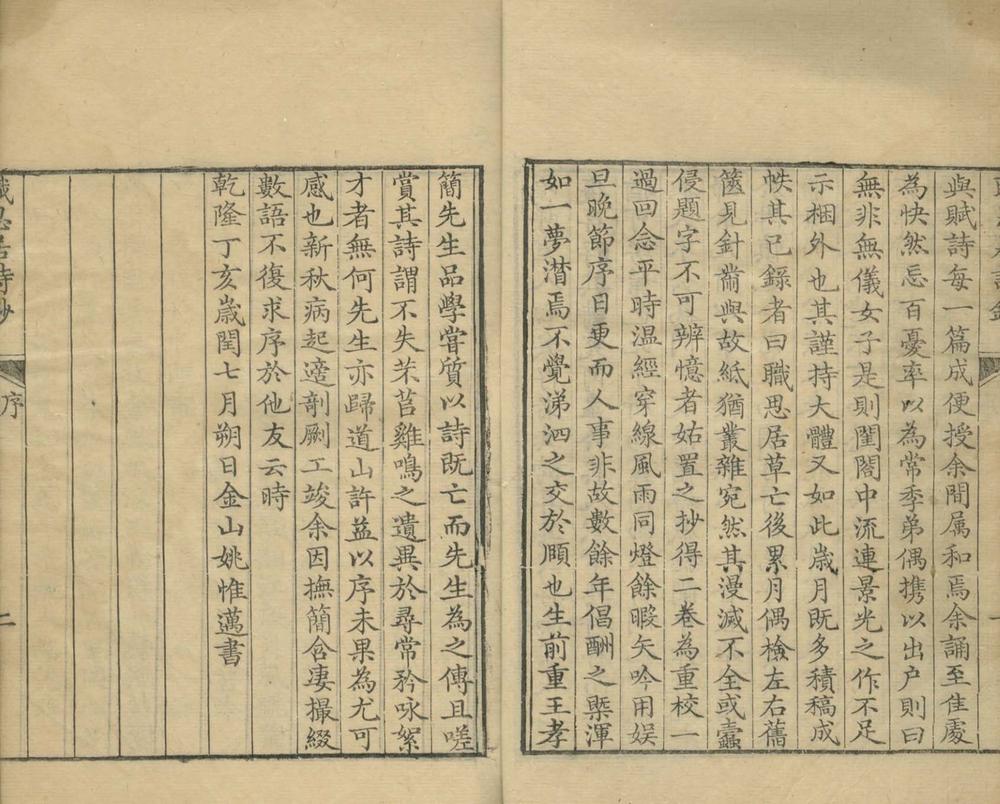 與賦詩每一篇成便授余閒属和焉余誦至佳處
為快然忘百憂率以為常季弟偶携以出户則曰
無非無儀女子是則閨閤中流連景光之作不足
示梱外也其謹持大體又如此歳月既多積稿成
帙其已錄者曰職思居草亡後累月偶檢左右舊
篋見針黹與故紙猶叢雜宛然其漫滅不全或蠧
侵題字不可辨憶者姑置之抄得二卷為重校一
過回念平時温經穿線風雨同燈餘暇矢吟用娱
旦晩節序日更而人事非故數餘年倡酬之槩渾
如一夢潸焉不覺涕泗之交於頤也生前重王孝
簡先生品學嘗質以詩既亡而先生為之傳且嗟
賞其詩謂不失芣苢雞鳴之遺異於尋常矜咏絮
才者無何先生亦歸道山許益以序未果為尤可
感也新秋病起適剞劂工竣余因撫簡含凄撮綴
數語不復求序於他友云時
乾隆丁亥歳閏七月朔日金山姚惟邁書
職思居詩鈔
序
二